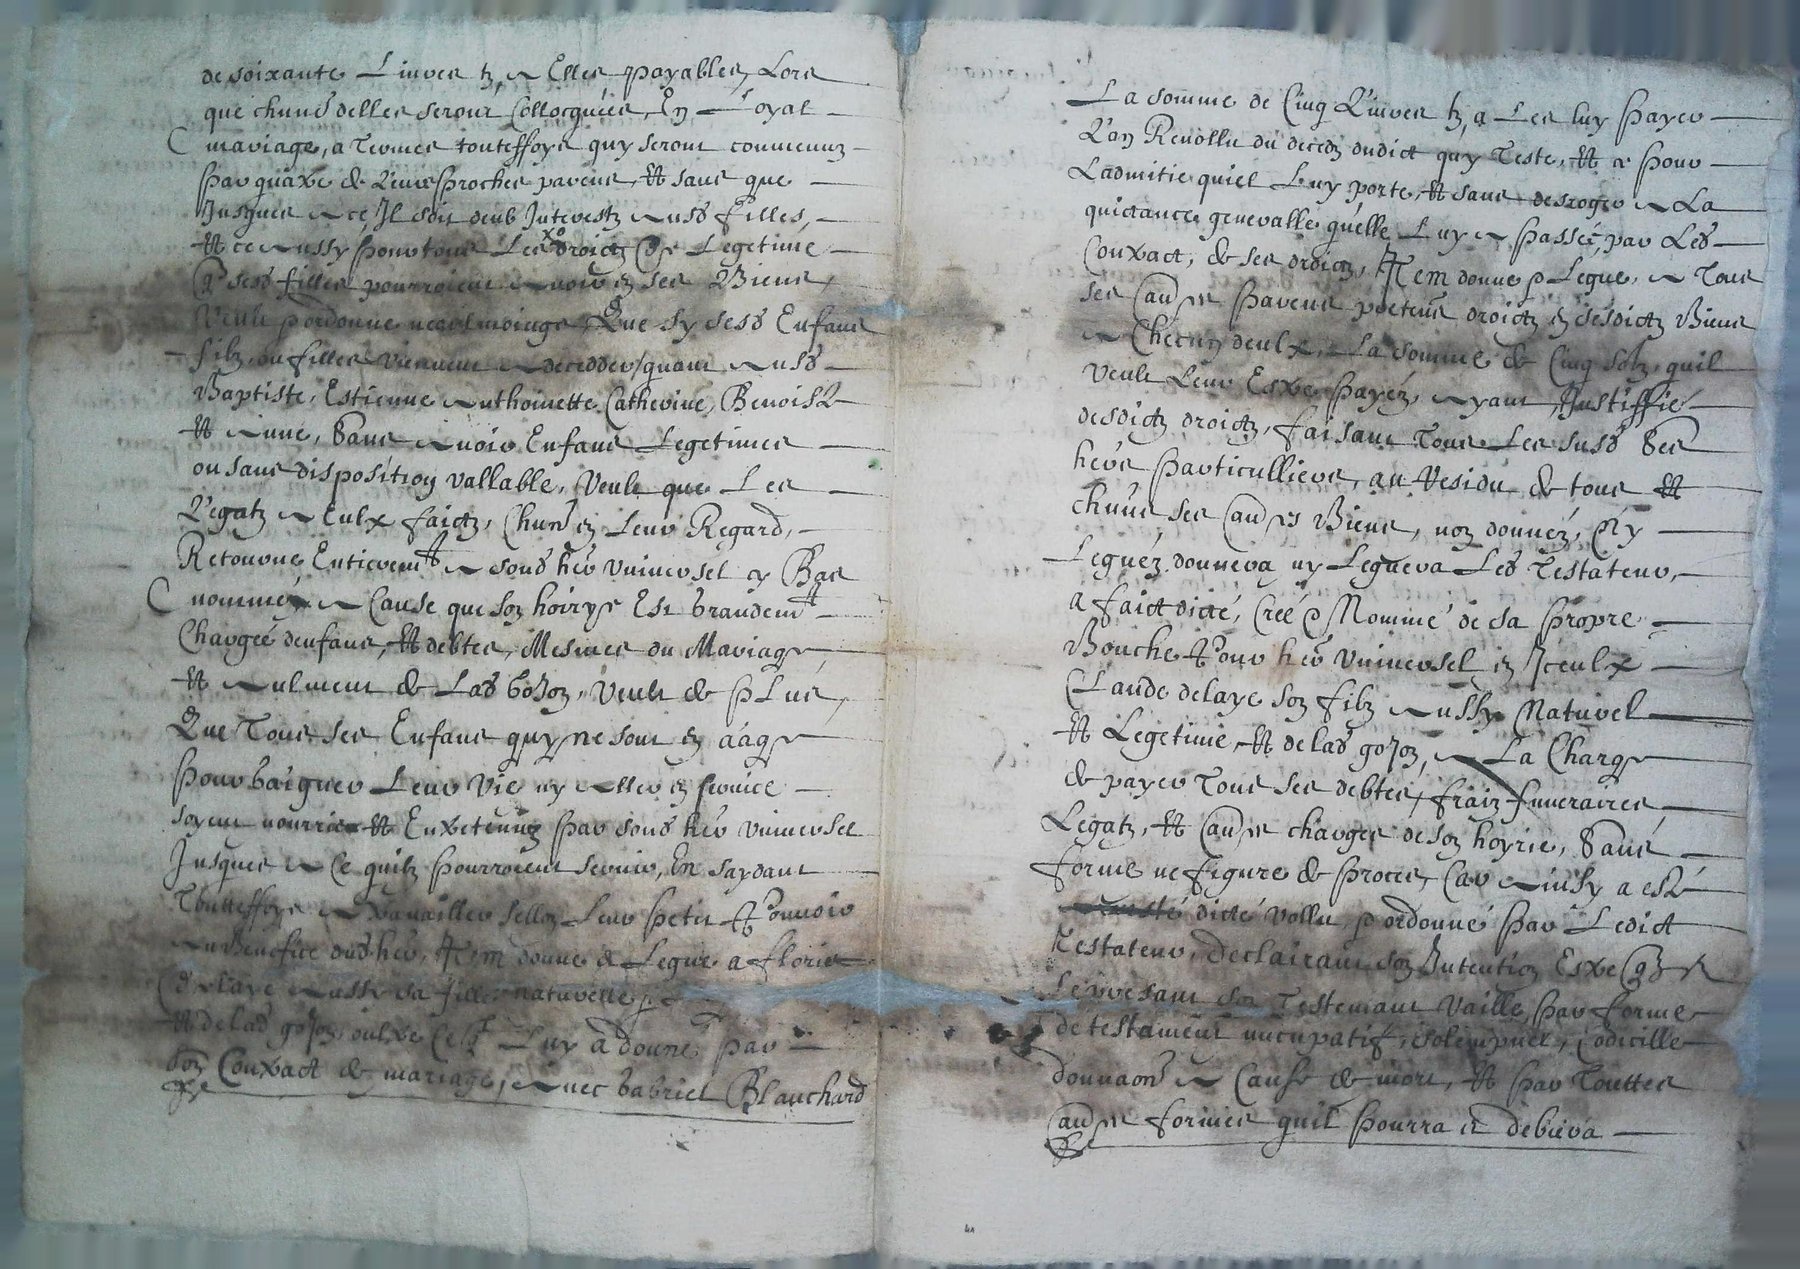 de soixante Livres tz A Elles payables, Lors
que chund delles seront Collocquées, En Loyal
mariage, a Termes touteffoys quy seront convenuz
par quatre de Leurs proches parens, Et sans que
Jusques A ce Il soit deub Interestz Ausd filles,
Et ce Aussy pour tous Les droictz de Legetime
q sesd filles pourroient Avoir en ses Biens,
Veult & ordonne neaulmoings, Que sy sesd Enfans
filz, ou filles viennent A decedder, quant Ausd
Baptiste, Estienne Anthoinette Catherine, Benoiste
Et Anne, Sans Avoir Enfans Legetimes
ou sans disposition vallable, Veult que Les
Legatz A Eulx faictz, Chun en Leur Regard,
Retourne Entieremt A sond her universel cy Bas
nommé, A Cause que son hoirye Est grandemt
Chargée denfans, Et debtes, Mesmes du Mariage
Et Aulment de Lad goJon, Veult de plus,
Que Tous ses Enfans quy ne sont en aage
pour gaigner Leur Vie ny Aller en service
soyent nourris Et Entretenuz par sond her universel
Jusques A Ce quilz pourroient servir, En saydant
Toutteffoys A Travailler sellon Leur petit Pouvoir
Au Benefice dud her, Item donne & Legue a florie
Delaye Aussy sa fille naturelle
Et de lad goJon, oultre Ce q Luy a donné par
son Contract de mariage, Avec gabriel Blanchard
La somme de Cinq Livres tz, a Les luy payer
Lan Revollu du deces dudict quy Teste, Et a pour
Ladmitie quiel Luy porte, Et sans desroger A La
quictance generalle quelle Luy A passée, par Led
Contract, de ses droictz, Item donne & Legue, A Tous
ses aues parens pretens droictz en sesdictz Biens
A Chercun deulx, La somme de Cinq solz, quil
veult Leur Estre payéz, Ayant Justiffié
desdictz droictz, faisant Tous Les susd Ses
hers particulliers, au Residu de tous Et
chuns ses aues Biens, non donnéz, Ny
Leguéz, donnera ny Leguera Led Testateur,
a faict dicté, Creé & Nommé de sa propre
Bouche Pour her universel en Iceulx
Claude delaye son filz Aussy Naturel
Et Legetime, Et de lad goJon, A La Charge
de payer Tous ses debtes, fraiz funeraires,
Legatz, Et aues charges de son hoyrie, Sans
forme ne figure de proces, Car Ainsy a esté
dicté vollu & ordonné par Ledict
Testateur, declairant son Intention Estre
Le present son Testemant vaille, par forme
de testament nucupatif, solempnel, Codicille
donnaon A Cause de mort, Et par Touttes
aues formes quil pourra et debvra